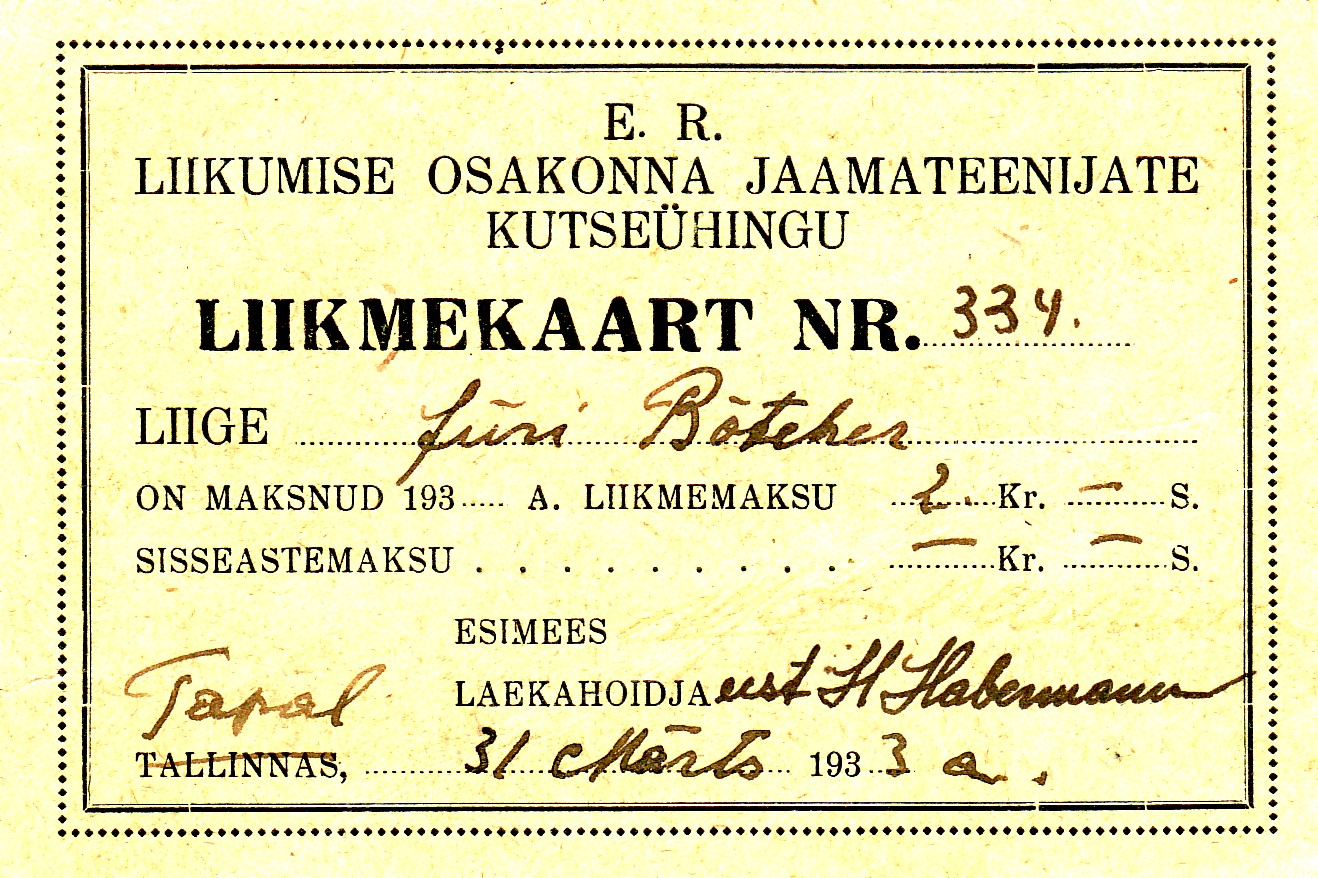 E. R.
LIIKUMISE OSAKONNA JAAMATEENIJATE
KUTSEÜHINGU
LIIKMEKAART NR. 334.
LIIGE Jüri Böteher
ON MAKSNUD 193..... A. LIIKMEMAKSU 2. Kr. — S.
SISSEASTEMAKSU . . . . . . . . . — Kr. — S.
ESIMEES
LAEKAHOIDJA eest H Habermann
Tapal
TALLINNAS, 31 Märts 1933 a.